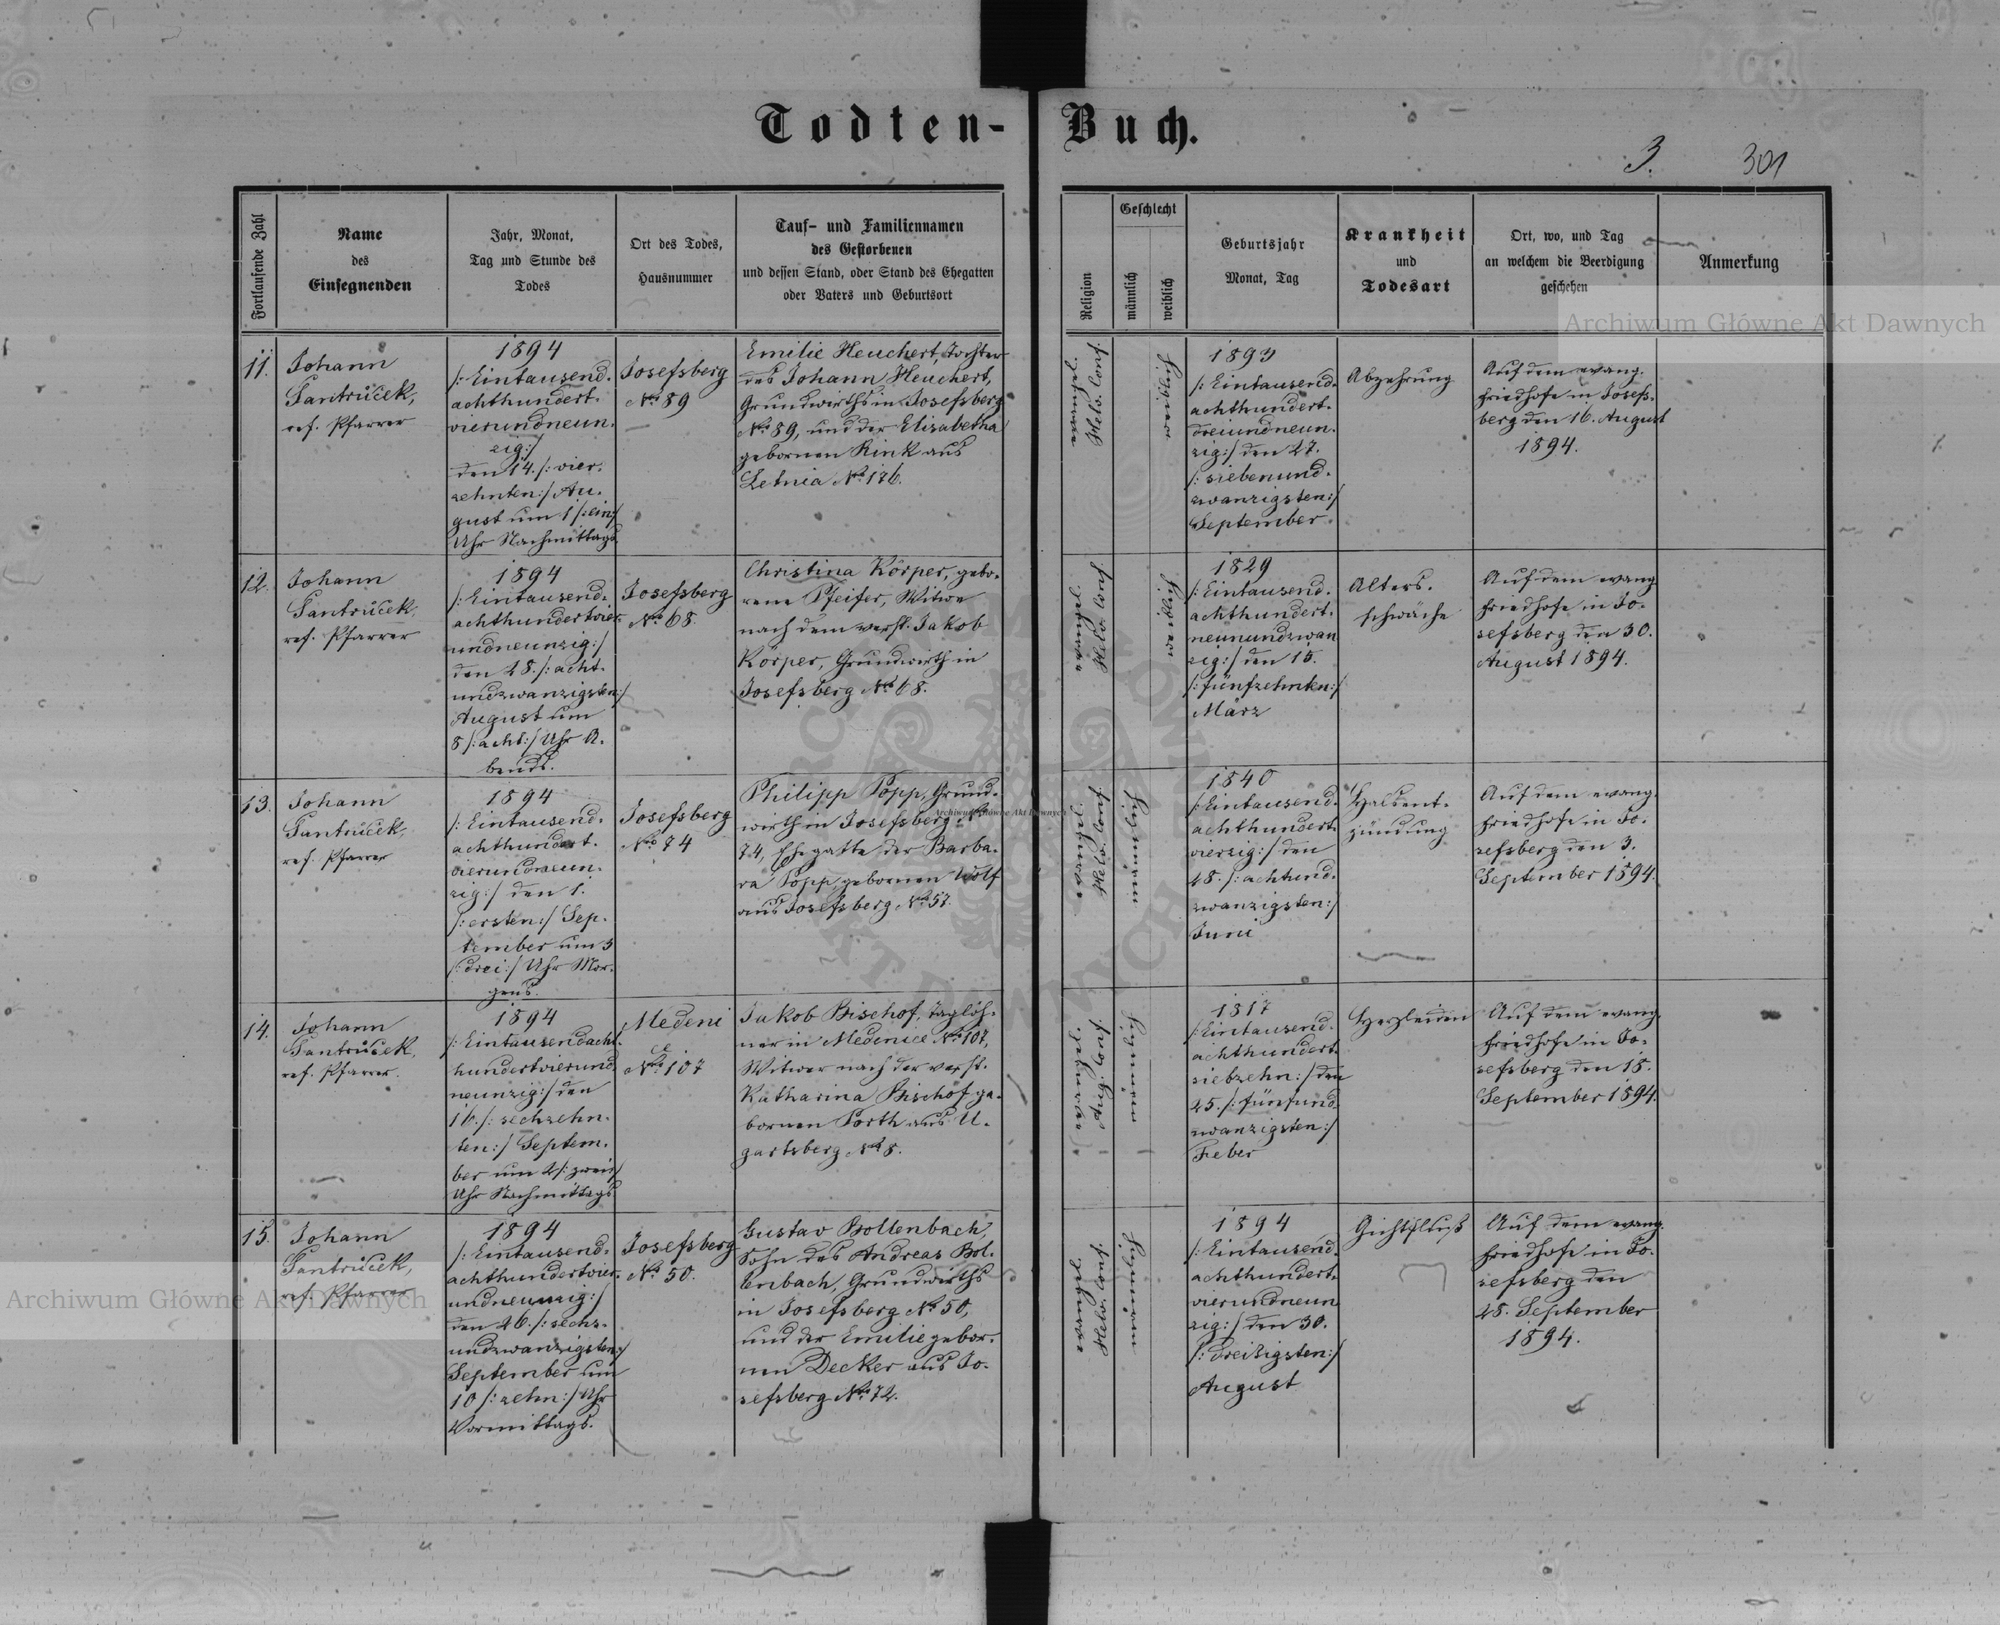 Todten-Buch.
3. 301
Fortlaufende Zahl
Name
des
Einsegnenden
Jahr, Monat,
Tag und Stunde des
Todes
Ort des Todes,
Hausnummer
Tauf- und Familiennamen
des Gestorbenen
und dessen Stand, oder Stand des Ehegatten
oder Vaters und Geburtsort
Religion
Geschlecht
männlich
weiblich
Geburtsjahr
Monat, Tag
Krankheit
und
Todesart
Ort, wo, und Tag
an welchem die Beerdigung
geschehen
Anmerkung
Archiwum Główne Akt Dawnych
11.
Johann
Jantruček,
ref. Pfarrer
1894
/:Eintausend-
achthundert-
vierundneun-
zig:/
den 14. /:vier-
zehnten:/ Au-
gust um 1 /:ein:/
Uhr Nachmittags
Josefsberg
No 89
Emilie Heuchert, Tochter
des Johann Heuchert,
Grundwirths in Josefsberg
No 89, und der Elisabetha
gebornen Rink aus
Letnia No 176.
evangel.
Helv. Conf.
weiblich
1893
/:Eintausend-
achthundert-
dreiundneun-
zig:/ den 27.
/:siebenund-
zwanzigsten:/
September
Abzehrung
Auf dem evang.
Friedhofe in Josefs-
berg den 16. August
1894.
12.
Johann
Jantruček,
ref. Pfarrer
1894
/:Eintausend-
achthundertvier-
undneunzig:/
den 28. /:acht-
undzwanzigsten:/
August um
8 /:acht:/ Uhr A-
bends.
Josefsberg
No 68
Christina Körper, gebo-
rene Pfeifer, Witwe
nach dem verst. Jakob
Körper, Grundwirth in
Josefsberg No 68.
evangel.
Helv. Conf
weiblich
1829
/:Eintausend-
achthundert-
neunundzwan
zig:/ den 15.
/:fünfzehnten:/
März
Alters-
schwäche
Auf dem evang
Friedhofe in Jo-
sefsberg den 30.
August 1894.
13.
Johann
Jantruček,
ref. Pfarrer
1894
/:Eintausend-
achthundert-
vierundneun-
zig:/ den 1.
/:ersten:/ Sep-
tember um 3
/:drei:/ Uhr Mor-
gens.
Josefsberg
No 74
Philipp Popp, Grund-
wirth in Josefsberg No
74, Ehegatte der Barba-
ra Popp, gebornen Wolf
aus Josefsberg No 57.
evangel.
Helv. Conf
männlich
1840
/:Eintausend-
achthundert-
vierzig:/ den
28. /:achtund-
zwanzigsten:/
Juni
Halsent-
zündung
Auf dem evang.
Friedhofe in Jo-
sefsberg den 3.
September 1894.
Archiwum Główne Akt Dawnych
14.
Johann
Jantruček,
ref. Pfarrer
1894
/:Eintausendacht-
hundertvierund
neunzig:/ den
16. /:sechzehn-
ten:/ Septem-
ber um 2 /:zwei:/
Uhr Nachmittags
Medeni
ce
No 107
Jakob Bischof, Taglöh-
ner in Medenice No 107,
Witwer nach der verst.
Katharina Bischof ge-
bornen Porth aus U-
gartsberg No 8.
evangel.
Aug. Conf.
männlich
1817
/:Eintausend-
achthundert-
siebzehn:/ den
25. /:fünfund-
zwanzigsten:/
Feber
Herzleiden
Auf dem evang.
Friedhofe in Jo-
sefsberg den 18.
September 1894.
15.
Johann
Jantruček,
ref. Pfarrer
1894
/:Eintausend-
achthundertvier-
undneunzig:/
den 26. /:sechs-
undzwanzigsten:/
September um
10 /:zehn:/ Uhr
Vormittags.
Josefsberg
No 50.
Gustav Bollenbach,
Sohn des Andreas Bol-
lenbach, Grundwirths
in Josefsberg No 50,
und der Emilie gebor-
nen Decker aus Jo-
sefsberg No 72.
evangel
Helv. Conf.
männlich
1894
/:Eintausend-
achthundert-
vierundneun
zig:/ den 30.
/:dreißigsten:/
August
Gichtfluß
Auf dem evang.
Friedhofe in Jo-
sefsberg den
28. September
1894.
Archiwum Główne Akt Dawnych